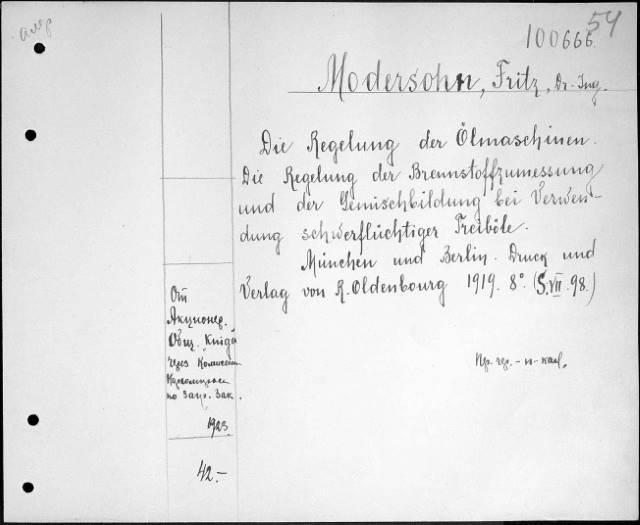 54
100666.
Modersohn, Fritz, Dr-Ing.
Die Regelung der Ölmaschinen.
Die Regelung der Brennstoffzumessung
und der Gemischbildung bei Verwen-
dung schwerflüchtiger Treiböle.
München und Berlin. Druck und
Verlag von R. Oldenbourg 1919. 8° (S. VII. 98.)
От
Акционер.
Общ. "Kniga"
через Комиссию
по Загр. Зак.
1923.
42.-